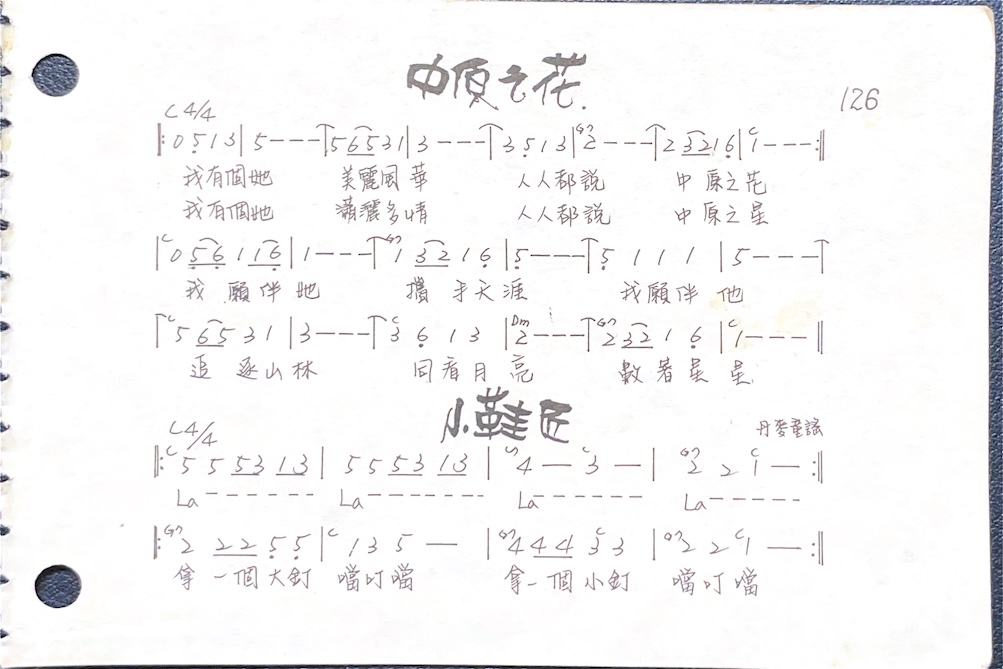 中原之花
126
C 4/4
‖: 0 5 1 3 | 5 - - - | 5 6 5 3 1 | 3 - - - | 3 5 1 3 | G7 2 - - - | 2 3 2 1 6 | C 1 - - - :‖
我有個她 美麗風華 人人都說 中原之花
我有個她 瀟灑多情 人人都說 中原之星
| C 0 5 6 1 1 6 | 1 - - - | G7 1 3 2 1 6 | 5 - - - | 5 1 1 1 | 5 - - - |
我願伴她 攜手天涯 我願伴他
| C 5 6 5 3 1 | 3 - - - | C 3 6 1 3 | Dm 2 - - - | G7 2 3 2 1 6 | C 1 - - - ‖
追逐山林 同看月亮 數著星星
小鞋匠
C 4/4
丹麥童謠
‖: C 5 5 5 3 1 3 | 5 5 5 3 1 3 | G7 4 — C 3 — | G7 2 2 C 1 — :‖
La - - - - - - La - - - - - - - - La - - - - - - La - - - - - - -
‖: G7 2 2 2 5 5 | C 1 3 5 — | G7 4 4 4 C 3 3 | G7 2 2 C 1 — :‖
拿一個大釘 噹叮噹 拿一個小釘 噹叮噹